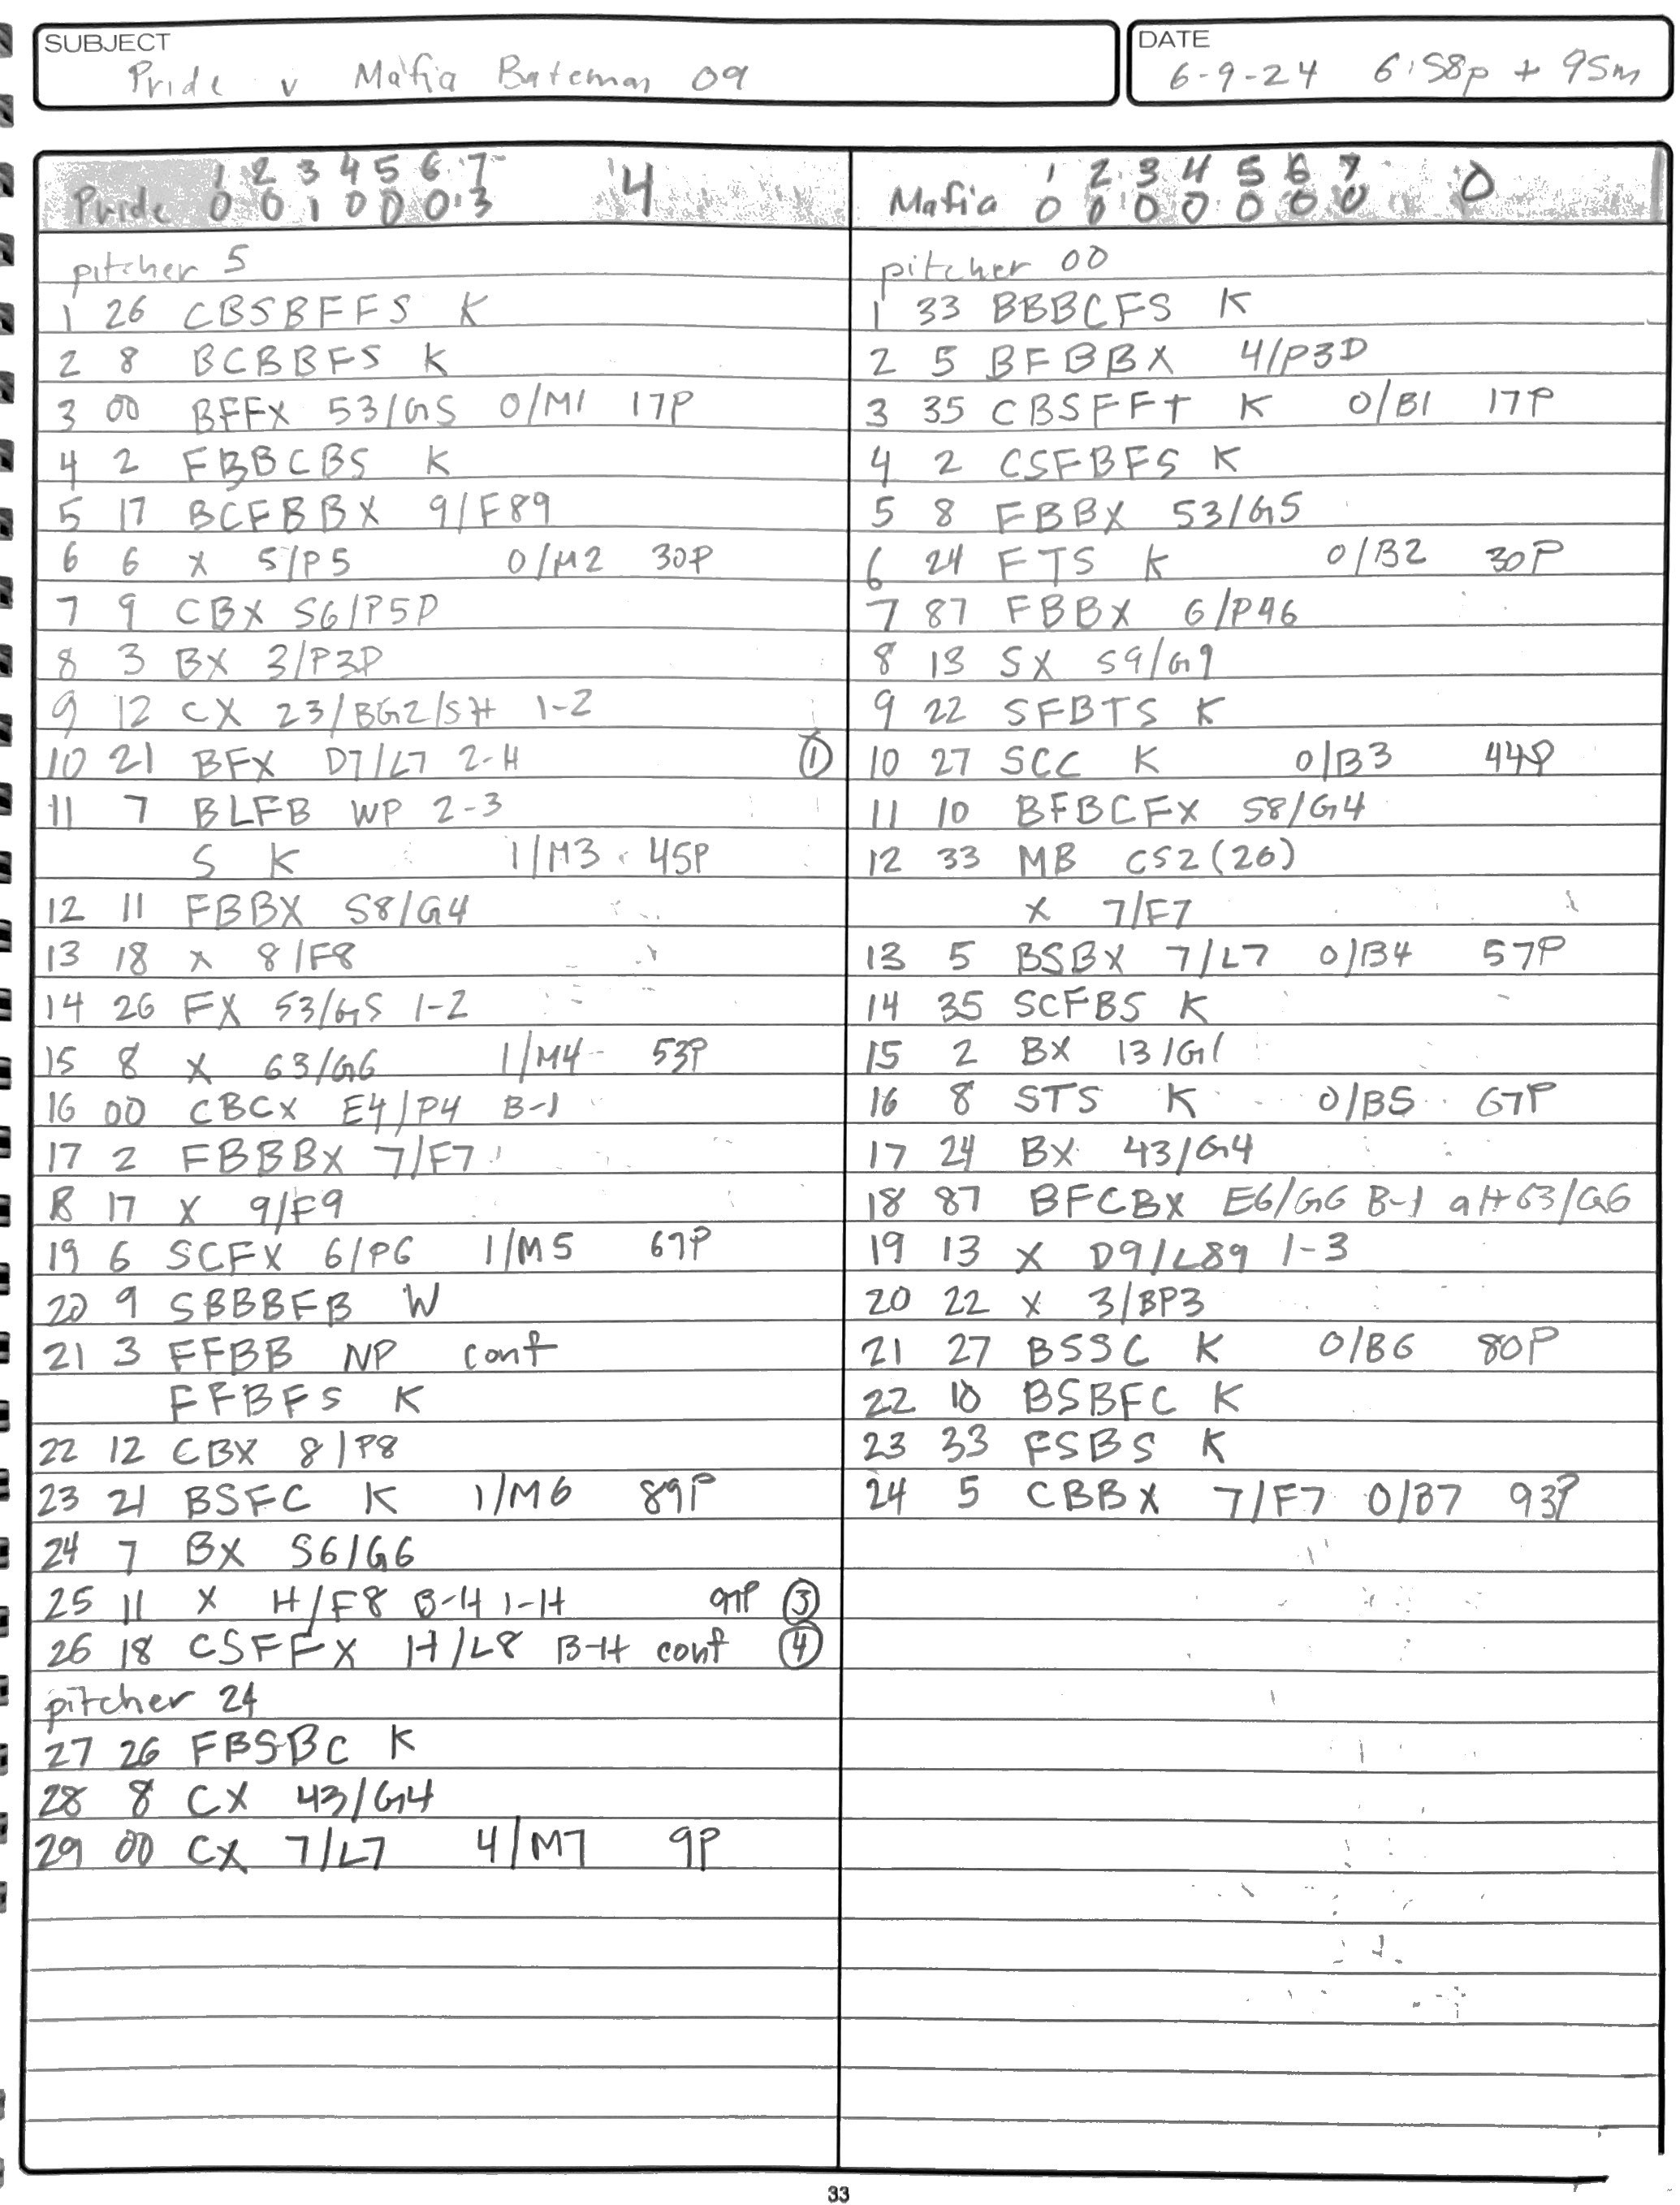 SUBJECT
Pride v Mafia Bateman 09
DATE
6-9-24 6:58p + 95m
1 2 3 4 5 6 7
Pride 0 0 1 0 0 0 3 4
pitcher 5
1 26 CBSBFFS K
2 8 BCBBFS K
3 00 BFFX 53/G5 0/M1 17P
4 2 FBBCBS K
5 17 BCFBBX 9/F89
6 6 X 5/P5 0/M2 30P
7 9 CBX S6/P5D
8 3 BX 3/P3D
9 12 CX 23/BG2/SH 1-2
10 21 BFX D7/L7 2-H ①
11 7 BLFB WP 2-3
S K 1/M3 45P
12 11 FBBX S8/G4
13 18 X 8/F8
14 26 FX 53/G5 1-2
15 8 X 63/G6 1/M4 53P
16 00 CBCX E4/P4 B-1
17 2 FBBBX 7/F7
18 17 X 9/F9
19 6 SCFX 6/P6 1/M5 67P
20 9 SBBBFB W
21 3 FFBB NP conf
FFBFS K
22 12 CBX 8/P8
23 21 BSFC K 1/M6 89P
24 7 BX S6/G6
25 11 X H/F8 B-H 1-H 97P ③
26 18 CSFFX H/L8 B-H conf ④
pitcher 24
27 26 FBSBC K
28 8 CX 43/G4
29 00 CX 7/L7 4/M7 9P
1 2 3 4 5 6 7
Mafia 0 0 0 0 0 0 0 0
pitcher 00
1 33 BBBCFS K
2 5 BFBBX 4/P3D
3 35 CBSFFT K 0/B1 17P
4 2 CSFBFS K
5 8 FBBX 53/G5
6 24 FTS K 0/B2 30P
7 87 FBBX 6/P46
8 13 SX S9/G9
9 22 SFBTS K
10 27 SCC K 0/B3 44P
11 10 BFBCFX S8/G4
12 33 MB CS2(26)
X 7/F7
13 5 BSBX 7/L7 0/B4 57P
14 35 SCFBS K
15 2 BX 13/G1
16 8 STS K 0/B5 67P
17 24 BX 43/G4
18 87 BFCBX E6/G6 B-1 alt 63/G6
19 13 X D9/L89 1-3
20 22 X 3/BP3
21 27 BSSC K 0/B6 80P
22 10 BSBFC K
23 33 FSBS K
24 5 CBBX 7/F7 0/B7 93P
33